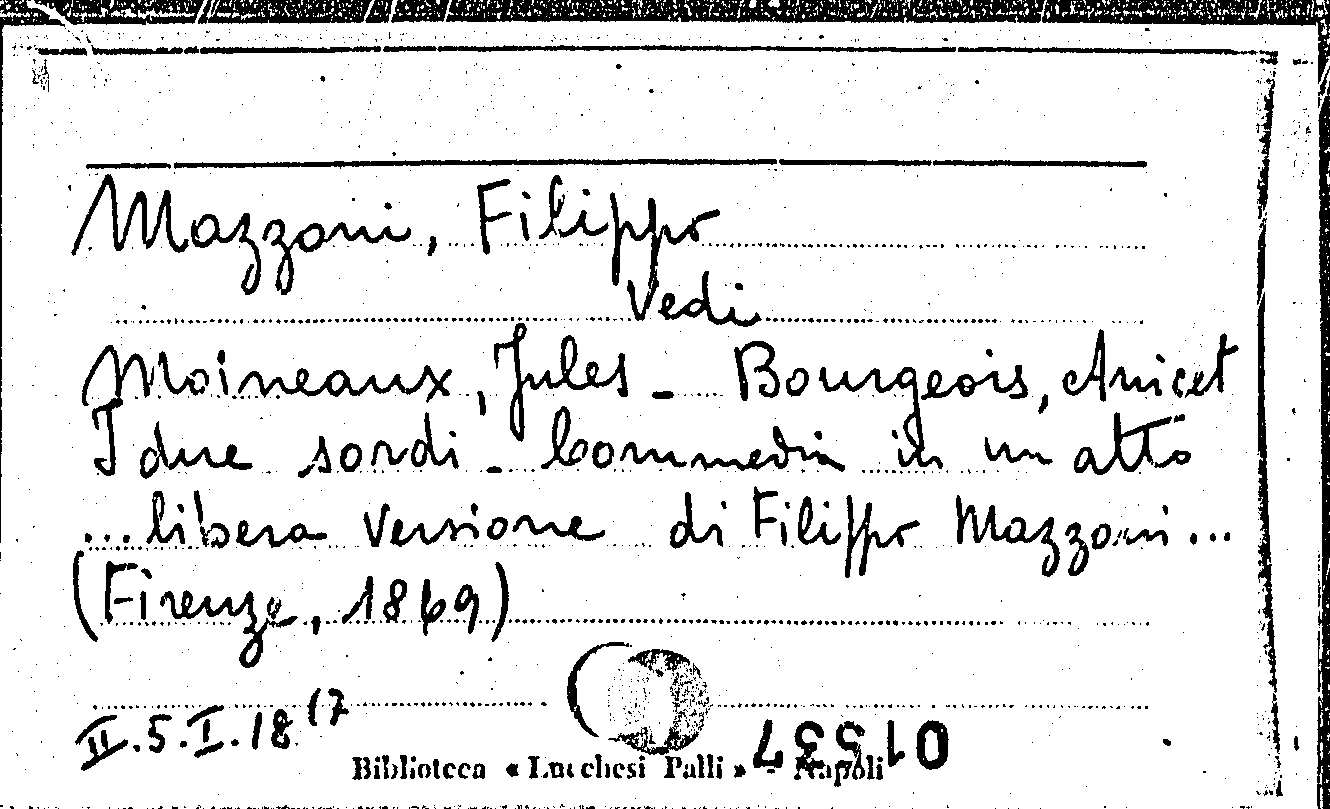 Mazzoni, Filippo
Vedi
Moineaux, Jules - Bourgeois, Anicet
I due sordi - Commedia in un atto
...libera versione di Filippo Mazzoni...
(Firenze, 1869)
II.5.I.18 (7
Biblioteca « Lucchesi Palli » - Napoli